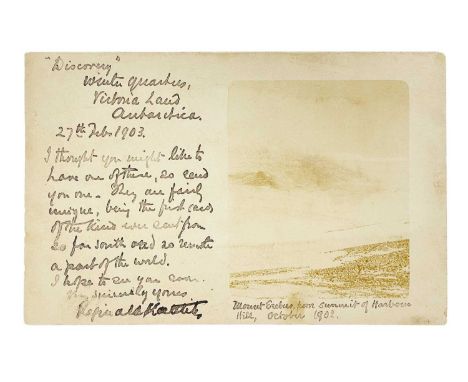 "Discovery"
Winter Quarters,
Victoria Land
Antarctica.
27th Feb 1903.
I thought you might like to
have one of these, so send
you one. They are fairly
unique, being the first cards
of the kind ever sent from
so far south and so remote
a part of the world.
I hope to see you soon.
Very sincerely yours
Reginald
Mount Erebus, from summit of Harbour
Hill, October 1902.